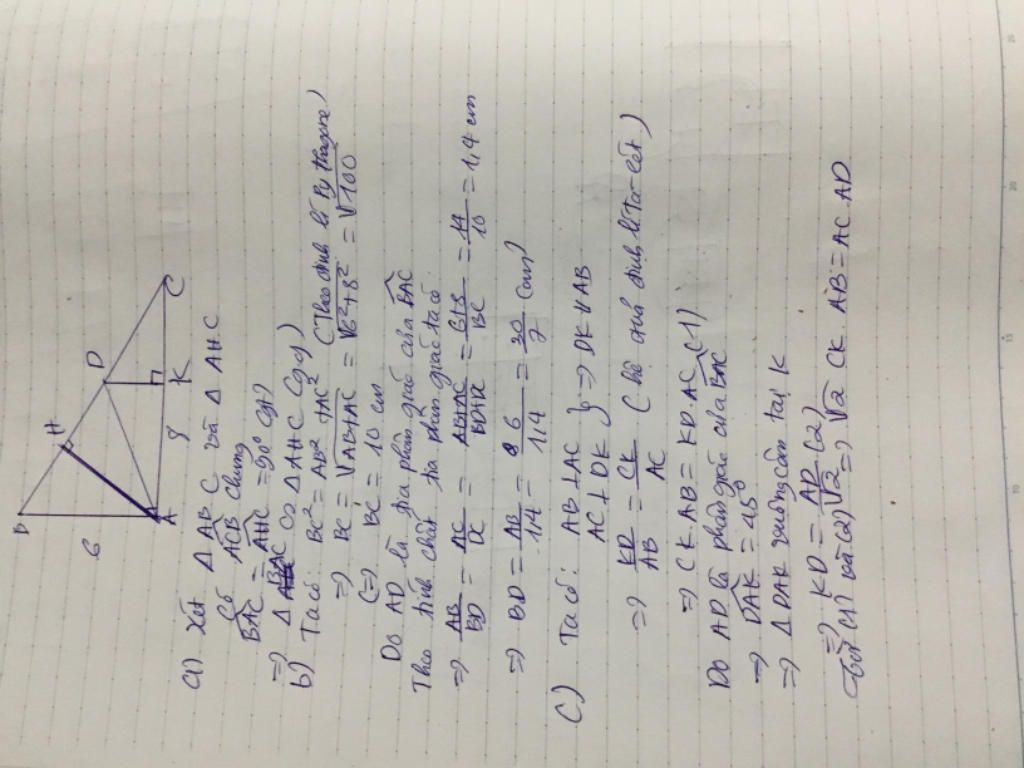 B
H
D
6
A
8
K
C
a) Xét Δ ABC và Δ AHC
Có ACB chung
BAC = AHC = 90° (gt)
=> Δ BAC ∽ Δ AHC (g.g)
b) Ta có: BC² = AB² + AC² (Theo định lí Pythagore)
=> BC = √AB+AC = √6²+8² = √100
(=) BC = 10 cm
Do AD là phân giác của BAC
Theo tính chất tia phân giác ta có
=> AB/BD = AC/DC = AB+AC/BD+DC = 6+8/BC = 14/10 = 1,4 cm
=> BD = AB/1,4 = 6/1,4 = 30/7 (cm)
c) Ta có: AB ⊥ AC
AC ⊥ DK } => DK // AB
=> KD/AB = CK/AC (hệ quả định lí Ta-lét)
=> CK.AB = KD.AC (1)
Do AD là phân giác của BAC
=> DAK = 45°
=> Δ DAK vuông cân tại K
=> KD = AD/√2 (2)
Từ (1) và (2) => √2 CK.AB = AC.AD